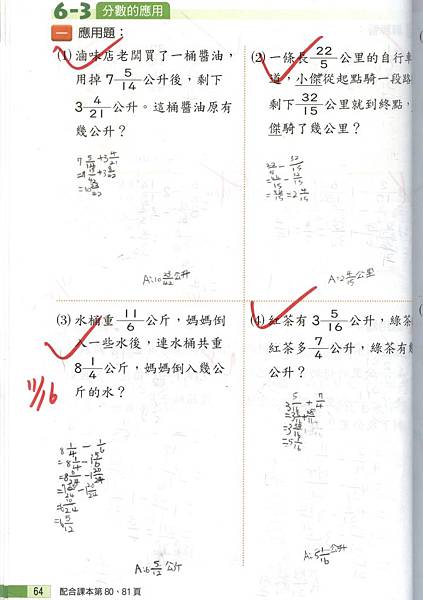 6-3 分數的應用
一 應用題：
(1) 滷味店老闆買了一桶醬油，
用掉 7 5/14 公升後，剩下
3 4/21 公升。這桶醬油原有
幾公升？
A：10 23/42 公升
(2) 一條長 22/5 公里的自行車
道，小傑從起點騎一段路
剩下 32/15 公里就到終點，
傑騎了幾公里？
22/5 - 32/15
A=2 4/15 公里
(3) 水桶重 11/6 公斤，媽媽倒
入一些水後，連水桶共重
8 1/4 公斤，媽媽倒入幾公
斤的水？
11/16
=6 5/12
A：6 5/12 公斤
(4) 紅茶有 3 5/16 公升，綠茶
紅茶多 7/4 公升，綠茶有幾
公升？
3 5/16 + 7/4
=5 1/16
A：5 1/16 公升
64 配合課本第 80、81 頁